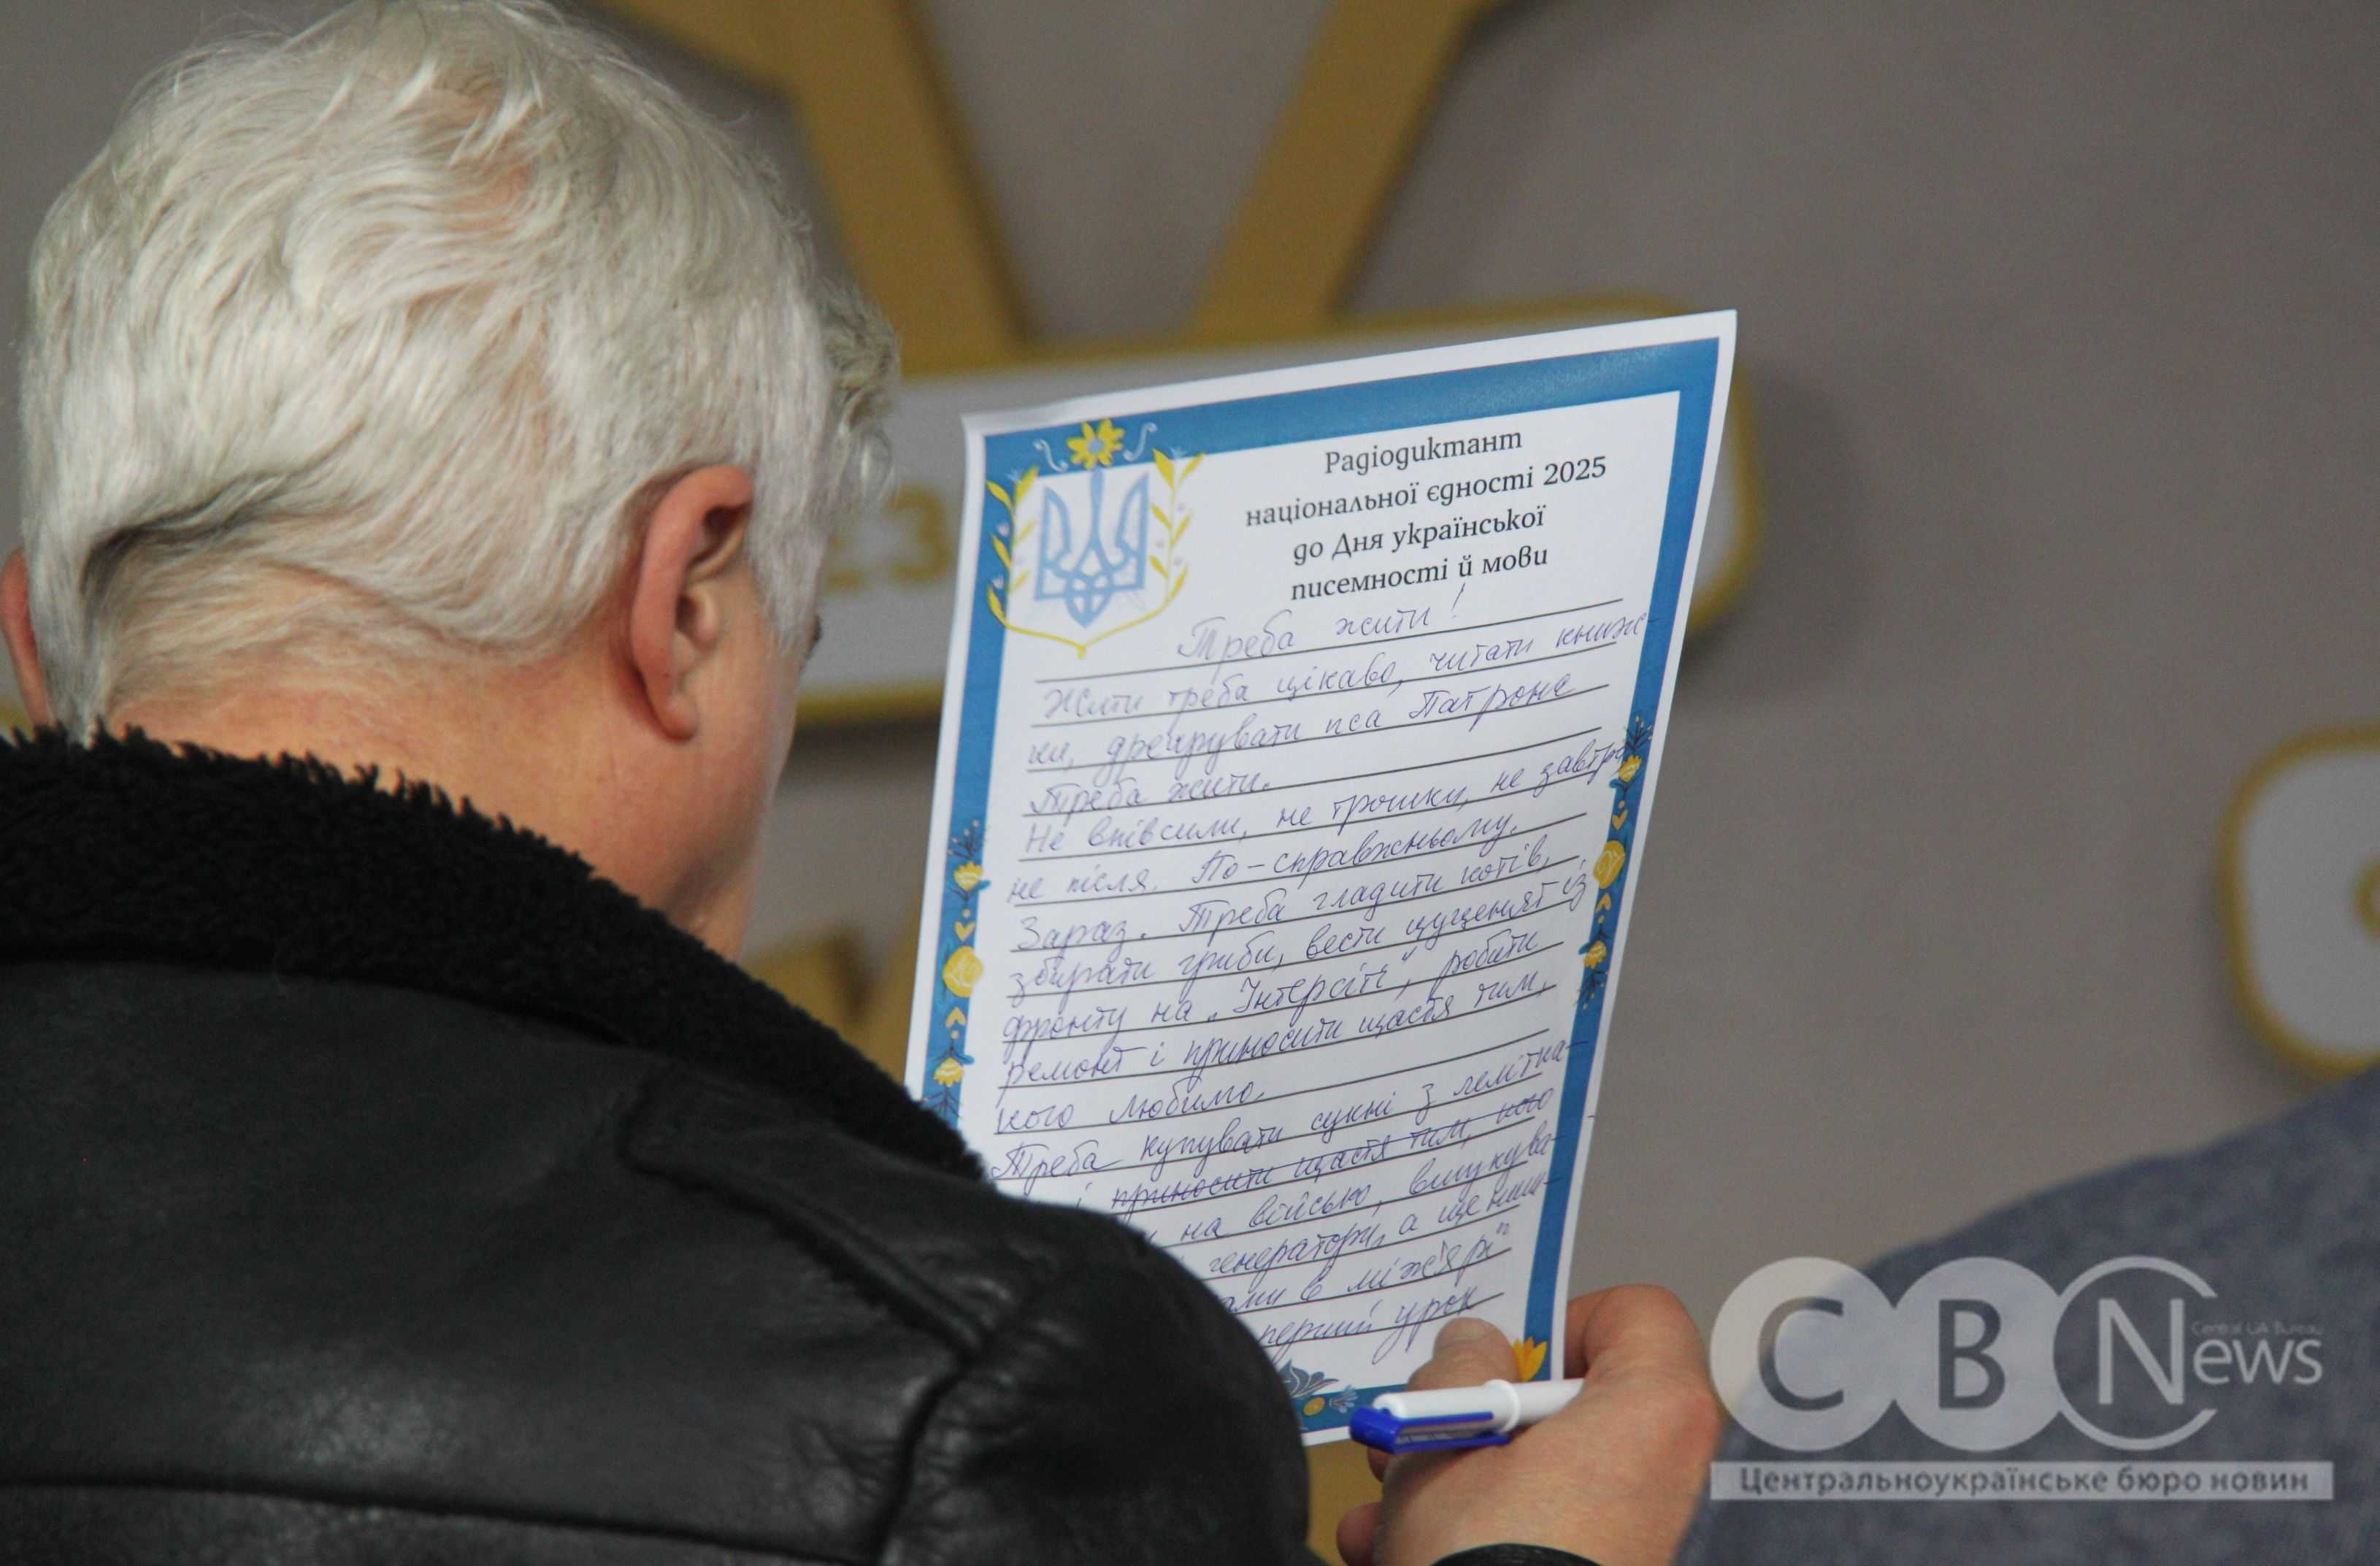 Радіодиктант
національної єдності 2025
до Дня української
писемності й мови
Треба жити!
Жити треба цікаво, читати книж-
ки, дресирувати пса Патрона
Треба жити.
Не впівсили, не трошки, не завтра
не після. По-справжньому.
Зараз. Треба гладити котів,
збирати гриби, вести цуценят із
фронту на "Інтерсіті", робити
ремонт і приносити щастя тим,
кого любимо.
Треba купувати сукні з лелітка-
і приносити щастя тим, кого
на військо, вишукува-
генератори, а ще ниш-
в між'ярї"
перший урок
23
CBNews
Central UA Bureau
Центральноукраїнське бюро новин